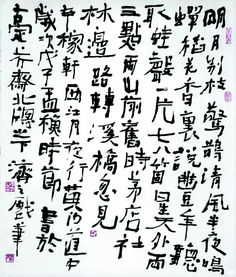 明月别枝驚鵲清風半夜鳴
蟬稻花香裏說豐年聽
取蛙聲一片七八箇星天外兩
三點雨山前舊時茅店社
林邊路轉溪橋忽見
辛稼軒西江月夜行黄沙道中
歲次戊子孟穐時節書於
齋北牕下